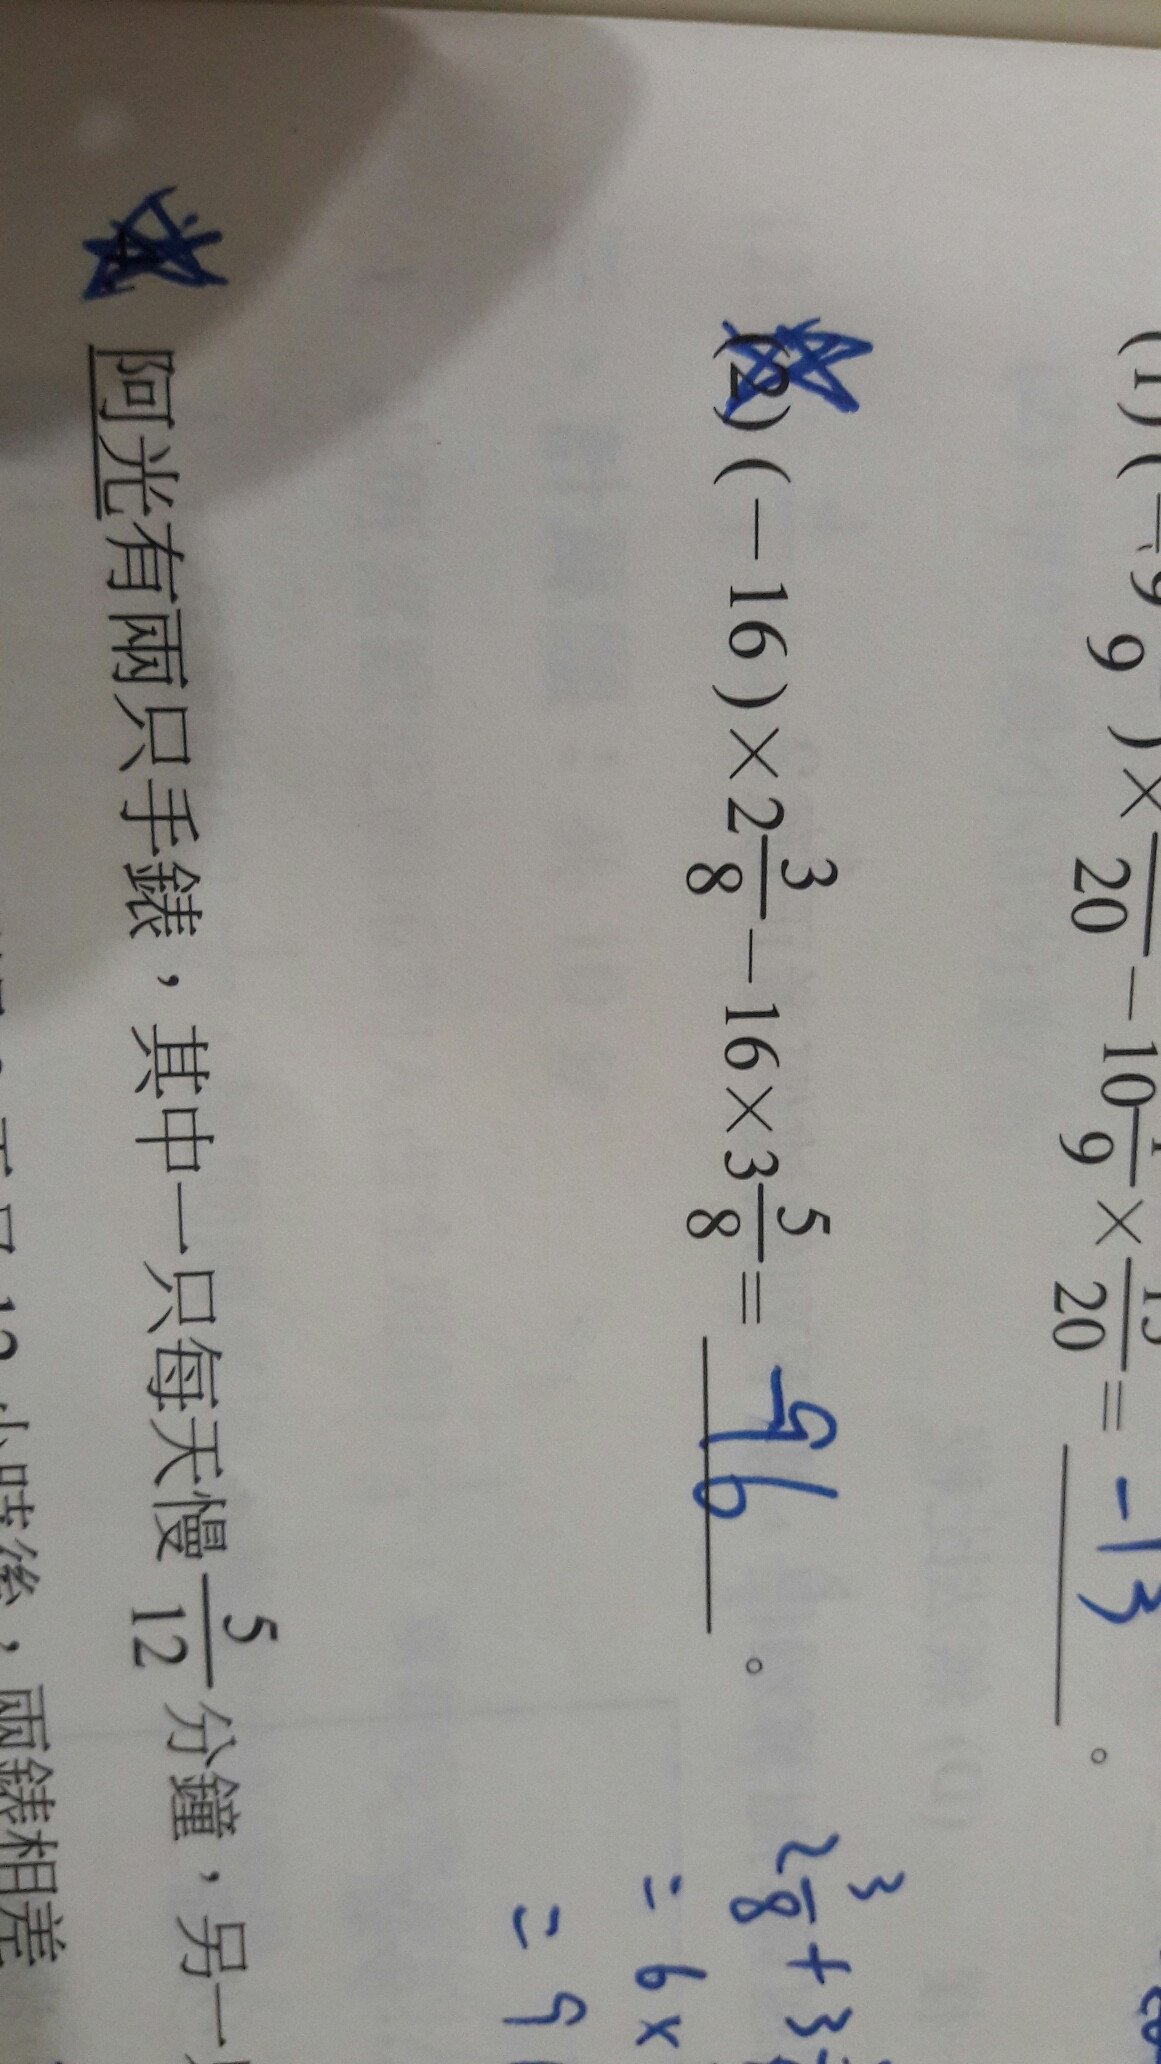 (1)(-9 9)×20-10 9×15/20=-13。
(2)(-16)×2 3/8-16×3 5/8=96。
2 3/8+3
=6×
=9
4. 阿光有兩只手錶,其中一只每天慢5/12分鐘,另一
12小時後,兩錶相差